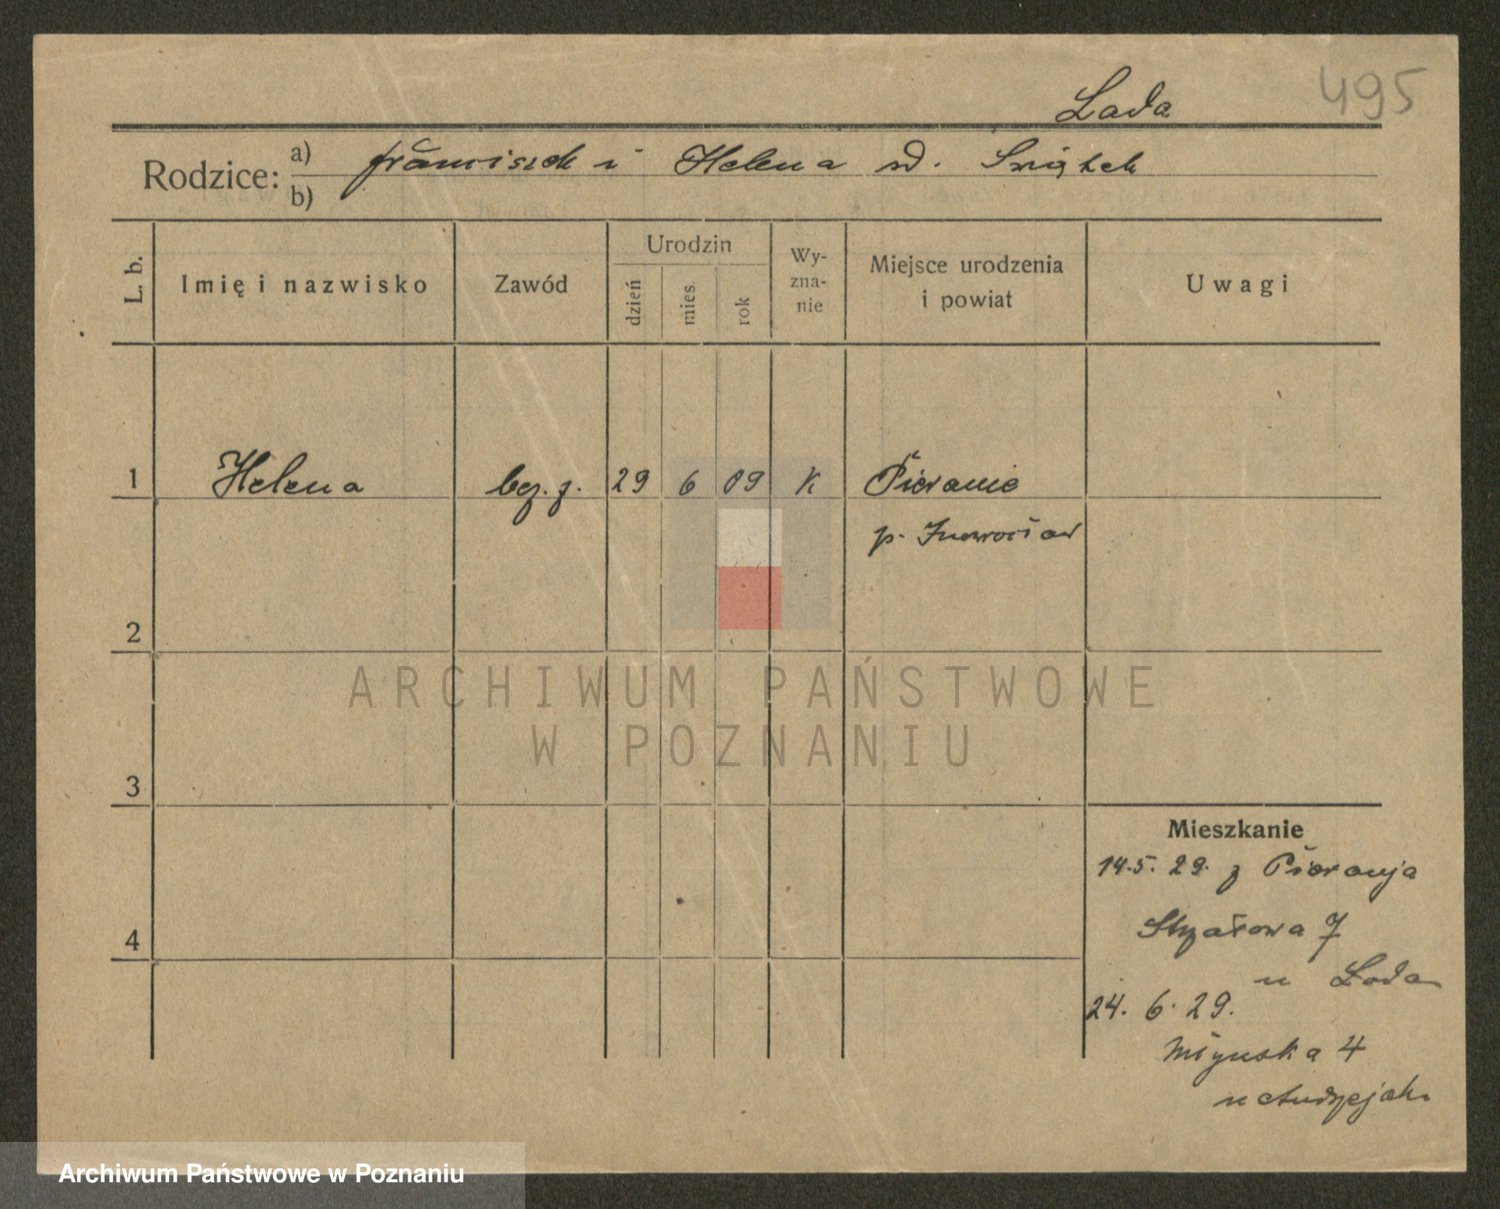 495
Lada
Rodzice: a) Franciszek i Helena rd. Swiątek
b)
L. b.
Imię i nazwisko
Zawód
Urodzin
dzień
mies
rok
Wy-
zna-
nie
Miejsce urodzenia
i powiat
Uwagi
1 Helena bez. z. 29 6 09 K Pieranie
p. Inowrocław
2
ARCHIWUM PAŃSTWOWE
W POZNANIU
3
Mieszkanie
14.5. 29. z Pieranja
4
7
u Lada
24. 6. 29.
Młyńska 4
u Andrzejak
Archiwum Państwowe w Poznaniu